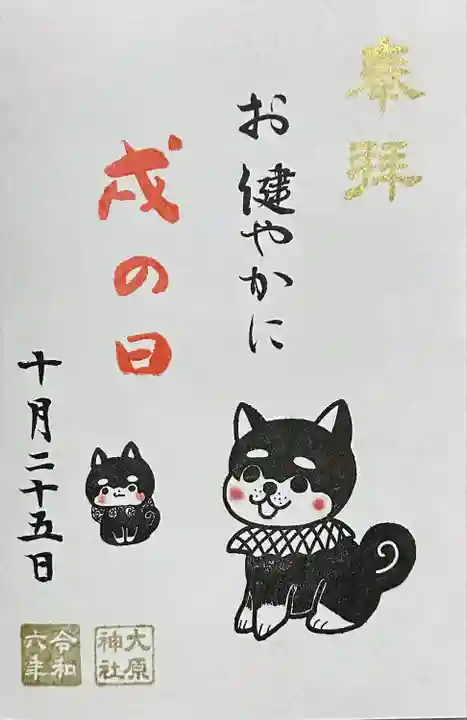 奉拝
お健やかに
戌の日
十月二十五日
大原
神社
令和
六年